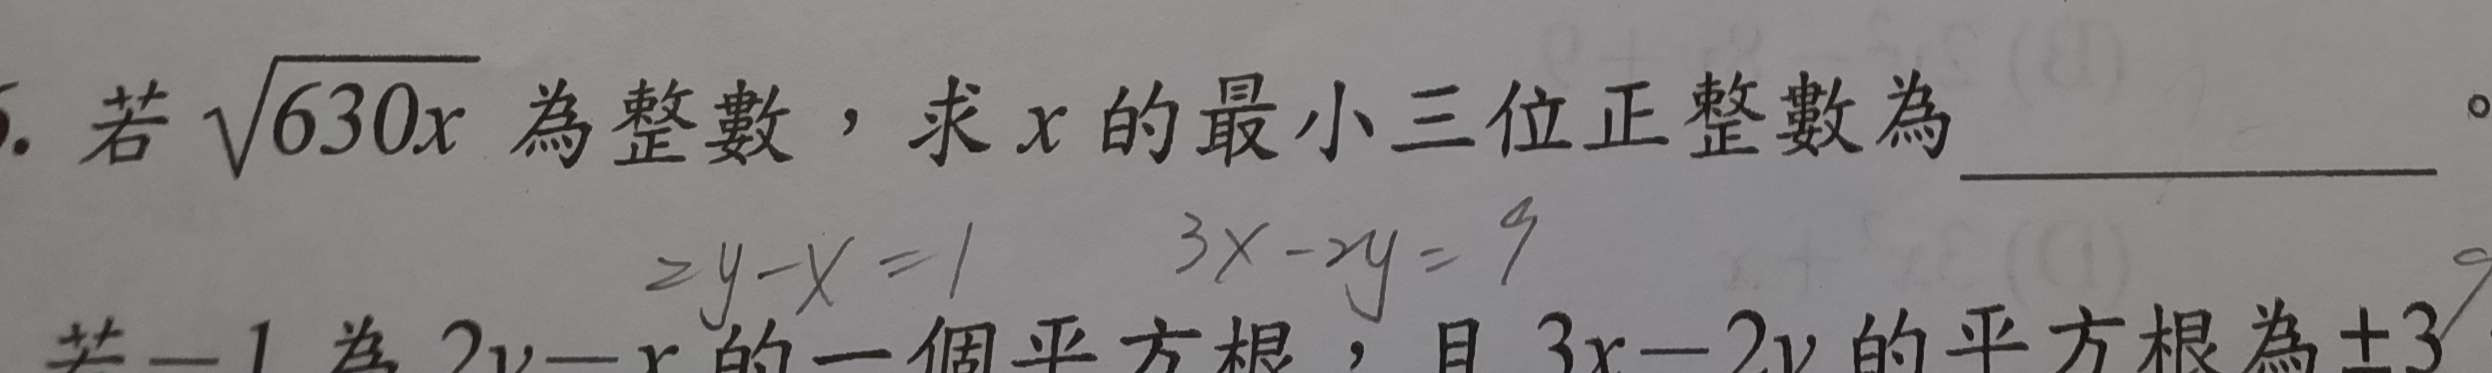 . 若 √630x 為整數，求 x 的最小三位正整數為＿＿＿＿。
2y-x=1 3x-2y=9
9
若 -1 為 2y-x 的一個平方根，且 3x-2y 的平方根為 ±3